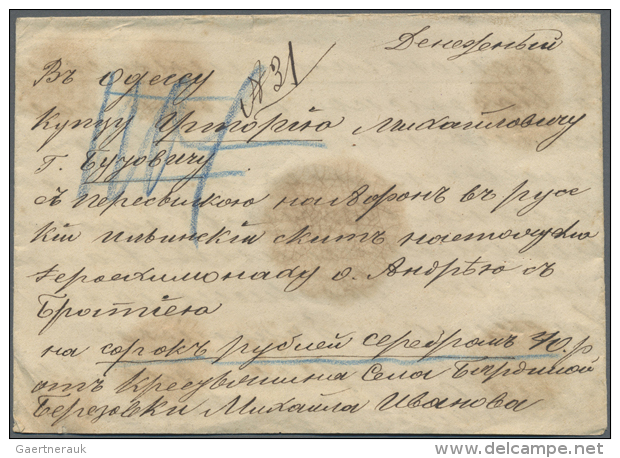 Денежный
№ 31
Въ Одессу
Купцу Григорію Михайловичу
Г. Бузовичу
съ пересылкою на Афонъ въ русс
кій ильинскій скитъ настоятелю
іеросхимонаху о. Андрею съ
Братіею
на сорокъ рублей серебромъ 40. р
отъ Крестьянина Села
Березовки Михаила Иванова
Gaertnerauk
www.delcampe.net